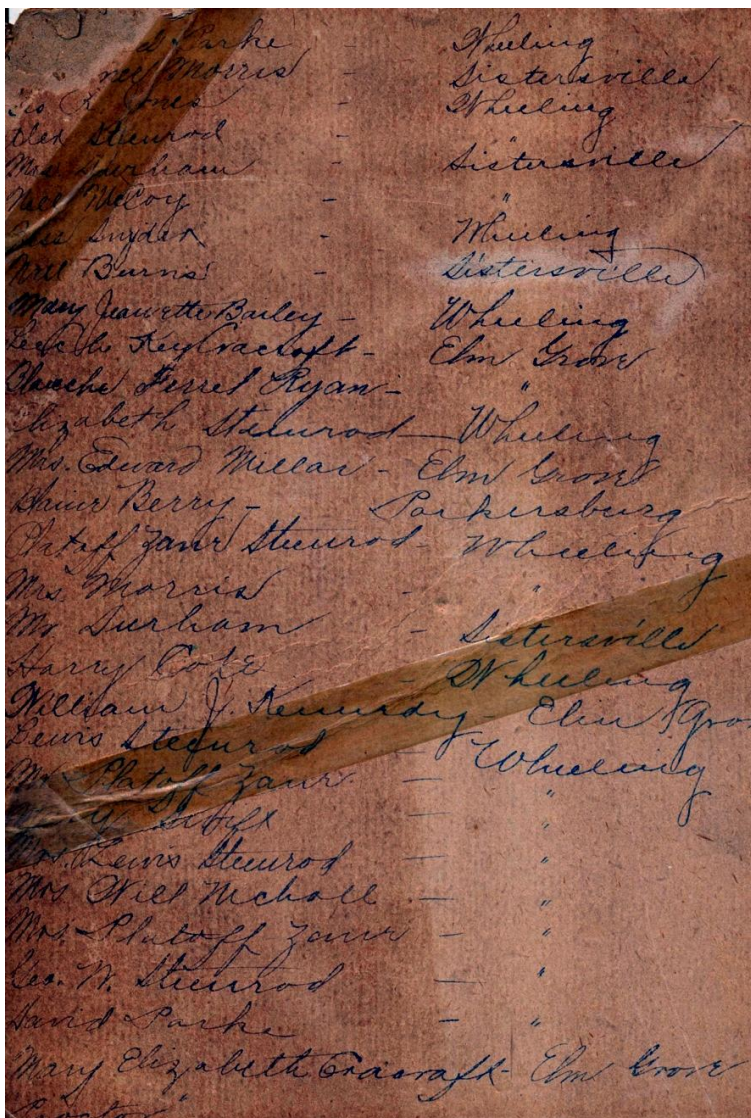 Parke - Wheeling
Morris - Sistersville
Geo R. Jones - Wheeling
Alex Steenrod - "
Mrs Durham - Sistersville
Nell McCoy - "
Snyder - Wheeling
Nell Burns - Sistersville
Mary Jeanette Bailey - Wheeling
Elm Grove
Blanche Ferrel Ryan - "
Elizabeth Steenrod - Wheeling
Mrs. Edward Millar - Elm Grove
Berry - Parkersburg
Platoff Zane Steenrod - Wheeling
Mrs. Morris - "
Mr Durham - Sistersville
Harry Cole - Wheeling
William J. Kennedy - Elm Grov
Lewis Steenrod - Wheeling
Mr Platoff Zane - "
- "
Mrs. Lewis Steenrod - "
Mrs Will Nicholl - "
Mrs. Platoff Zane - "
Geo. W. Steenrod - "
David Parke - "
Mary Elizabeth Cracraft - Elm Grove